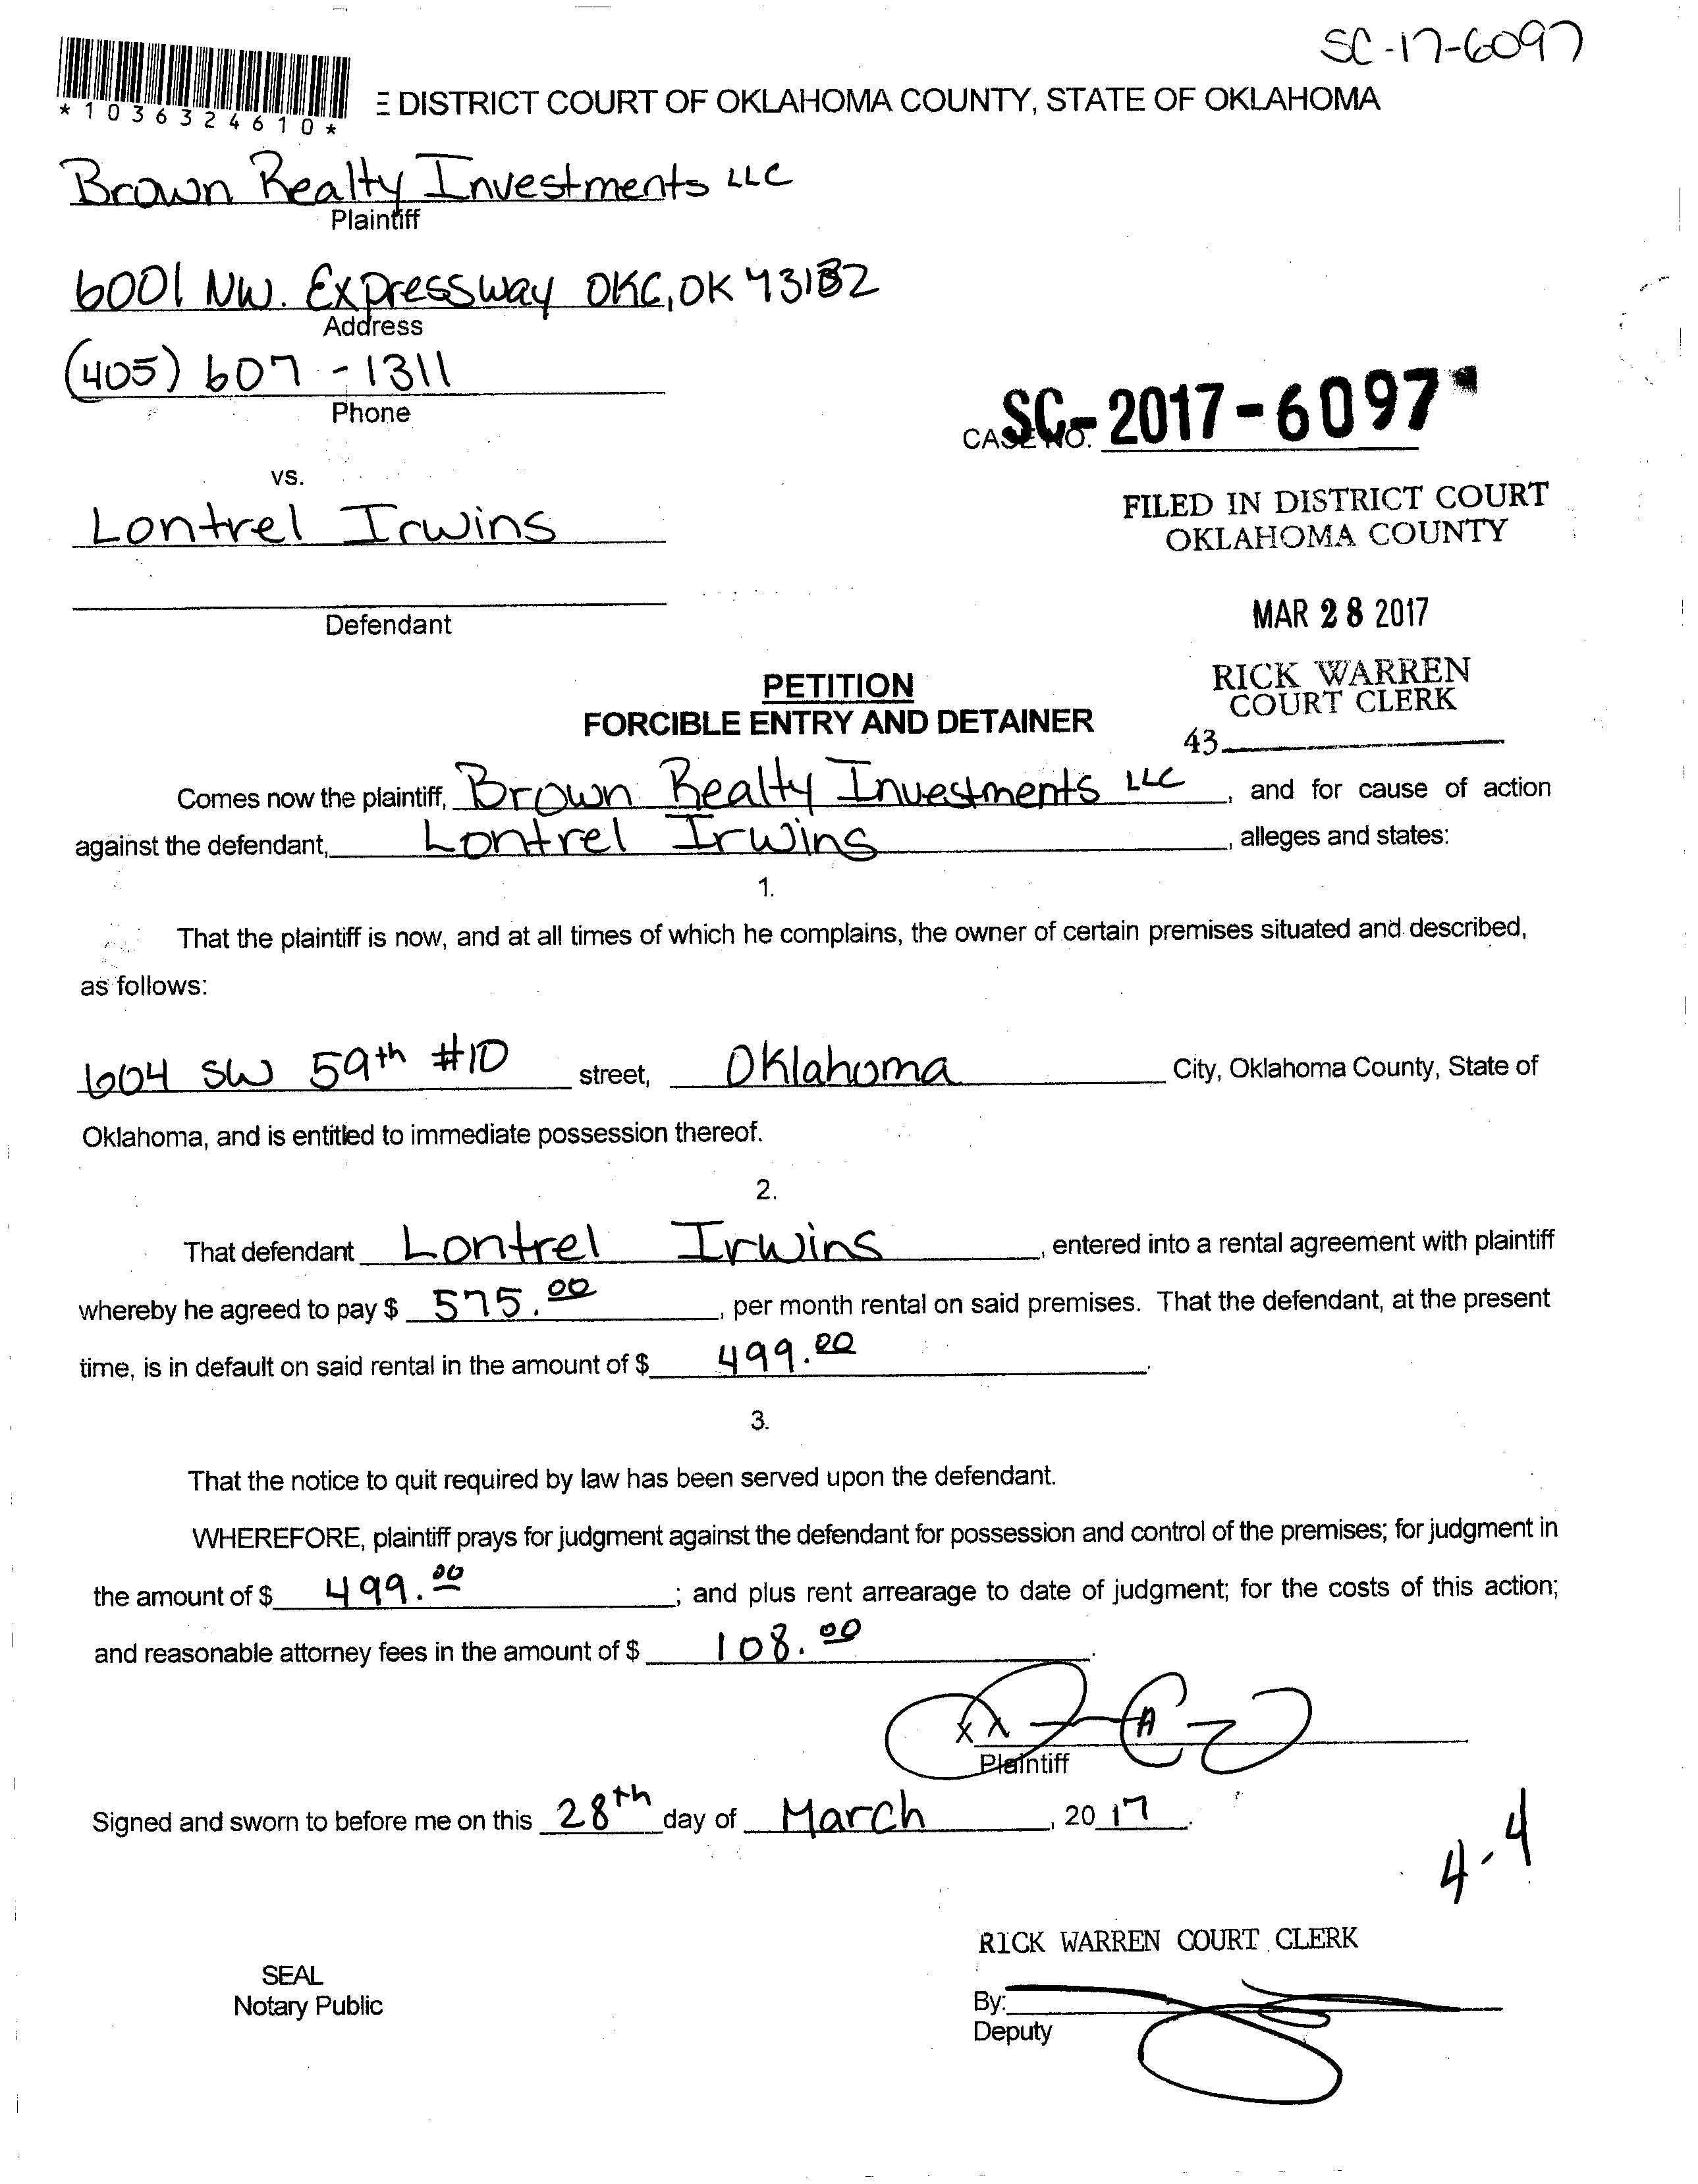 SC-17-6097
*1036324610*
E DISTRICT COURT OF OKLAHOMA COUNTY, STATE OF OKLAHOMA
Brown Realty Investments LLC
Plaintiff
6001 NW. Expressway OKC, OK 73132
Address
(405) 607-1311
Phone
CASE NO. SC-2017-6097
vs.
FILED IN DISTRICT COURT
OKLAHOMA COUNTY
Lontrel Irwins
Defendant
MAR 28 2017
RICK WARREN
COURT CLERK
43
PETITION
FORCIBLE ENTRY AND DETAINER
Comes now the plaintiff, Brown Realty Investments LLC, and for cause of action
against the defendant, Lontrel Irwins, alleges and states:
1.
That the plaintiff is now, and at all times of which he complains, the owner of certain premises situated and described,
as follows:
604 SW 59th #10 street, Oklahoma City, Oklahoma County, State of
Oklahoma, and is entitled to immediate possession thereof.
2.
That defendant Lontrel Irwins, entered into a rental agreement with plaintiff
whereby he agreed to pay $ 575.00, per month rental on said premises. That the defendant, at the present
time, is in default on said rental in the amount of $ 499.00.
3.
That the notice to quit required by law has been served upon the defendant.
WHEREFORE, plaintiff prays for judgment against the defendant for possession and control of the premises; for judgment in
the amount of $ 499.00; and plus rent arrearage to date of judgment; for the costs of this action;
and reasonable attorney fees in the amount of $ 108.00.
Plaintiff
Signed and sworn to before me on this 28th day of March, 2017.
4-4
RICK WARREN COURT CLERK
SEAL
Notary Public
By:
Deputy